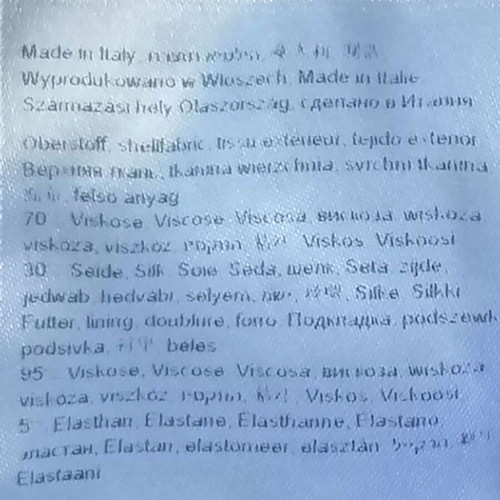 Made in Italy,
Wyprodukowano w Wloszech, Made in Italie
Származási hely Olaszország, сделано в Италия
Oberstoff, shellfabric, tissu exterieur, tejido exterior
Верхняя ткань, tkanina wierzchnia, svrchni tkanina
felso anyag
70 Viskose, Viscose, Viscosa, вискоза, wiskoza
viskoza, viszkoz, Viskos, Viskoosi
30 Seide, Silk, Soie, Seda, шелк, Seta, zijde,
jedwab, hedvábí, selyem, Silke, Silkki
Futter, lining, doublure, forro, Подкладка, podszewk
podsivka, beles
95 Viskose, Viscose, Viscosa, вискоза, wiskoza
viskoza, viszkoz, Viskos, Viskoosi
5 Elasthan, Elastane, Elasthanne, Elastano
эластан, Elastan, elastomeer, elasztán
Elastaani